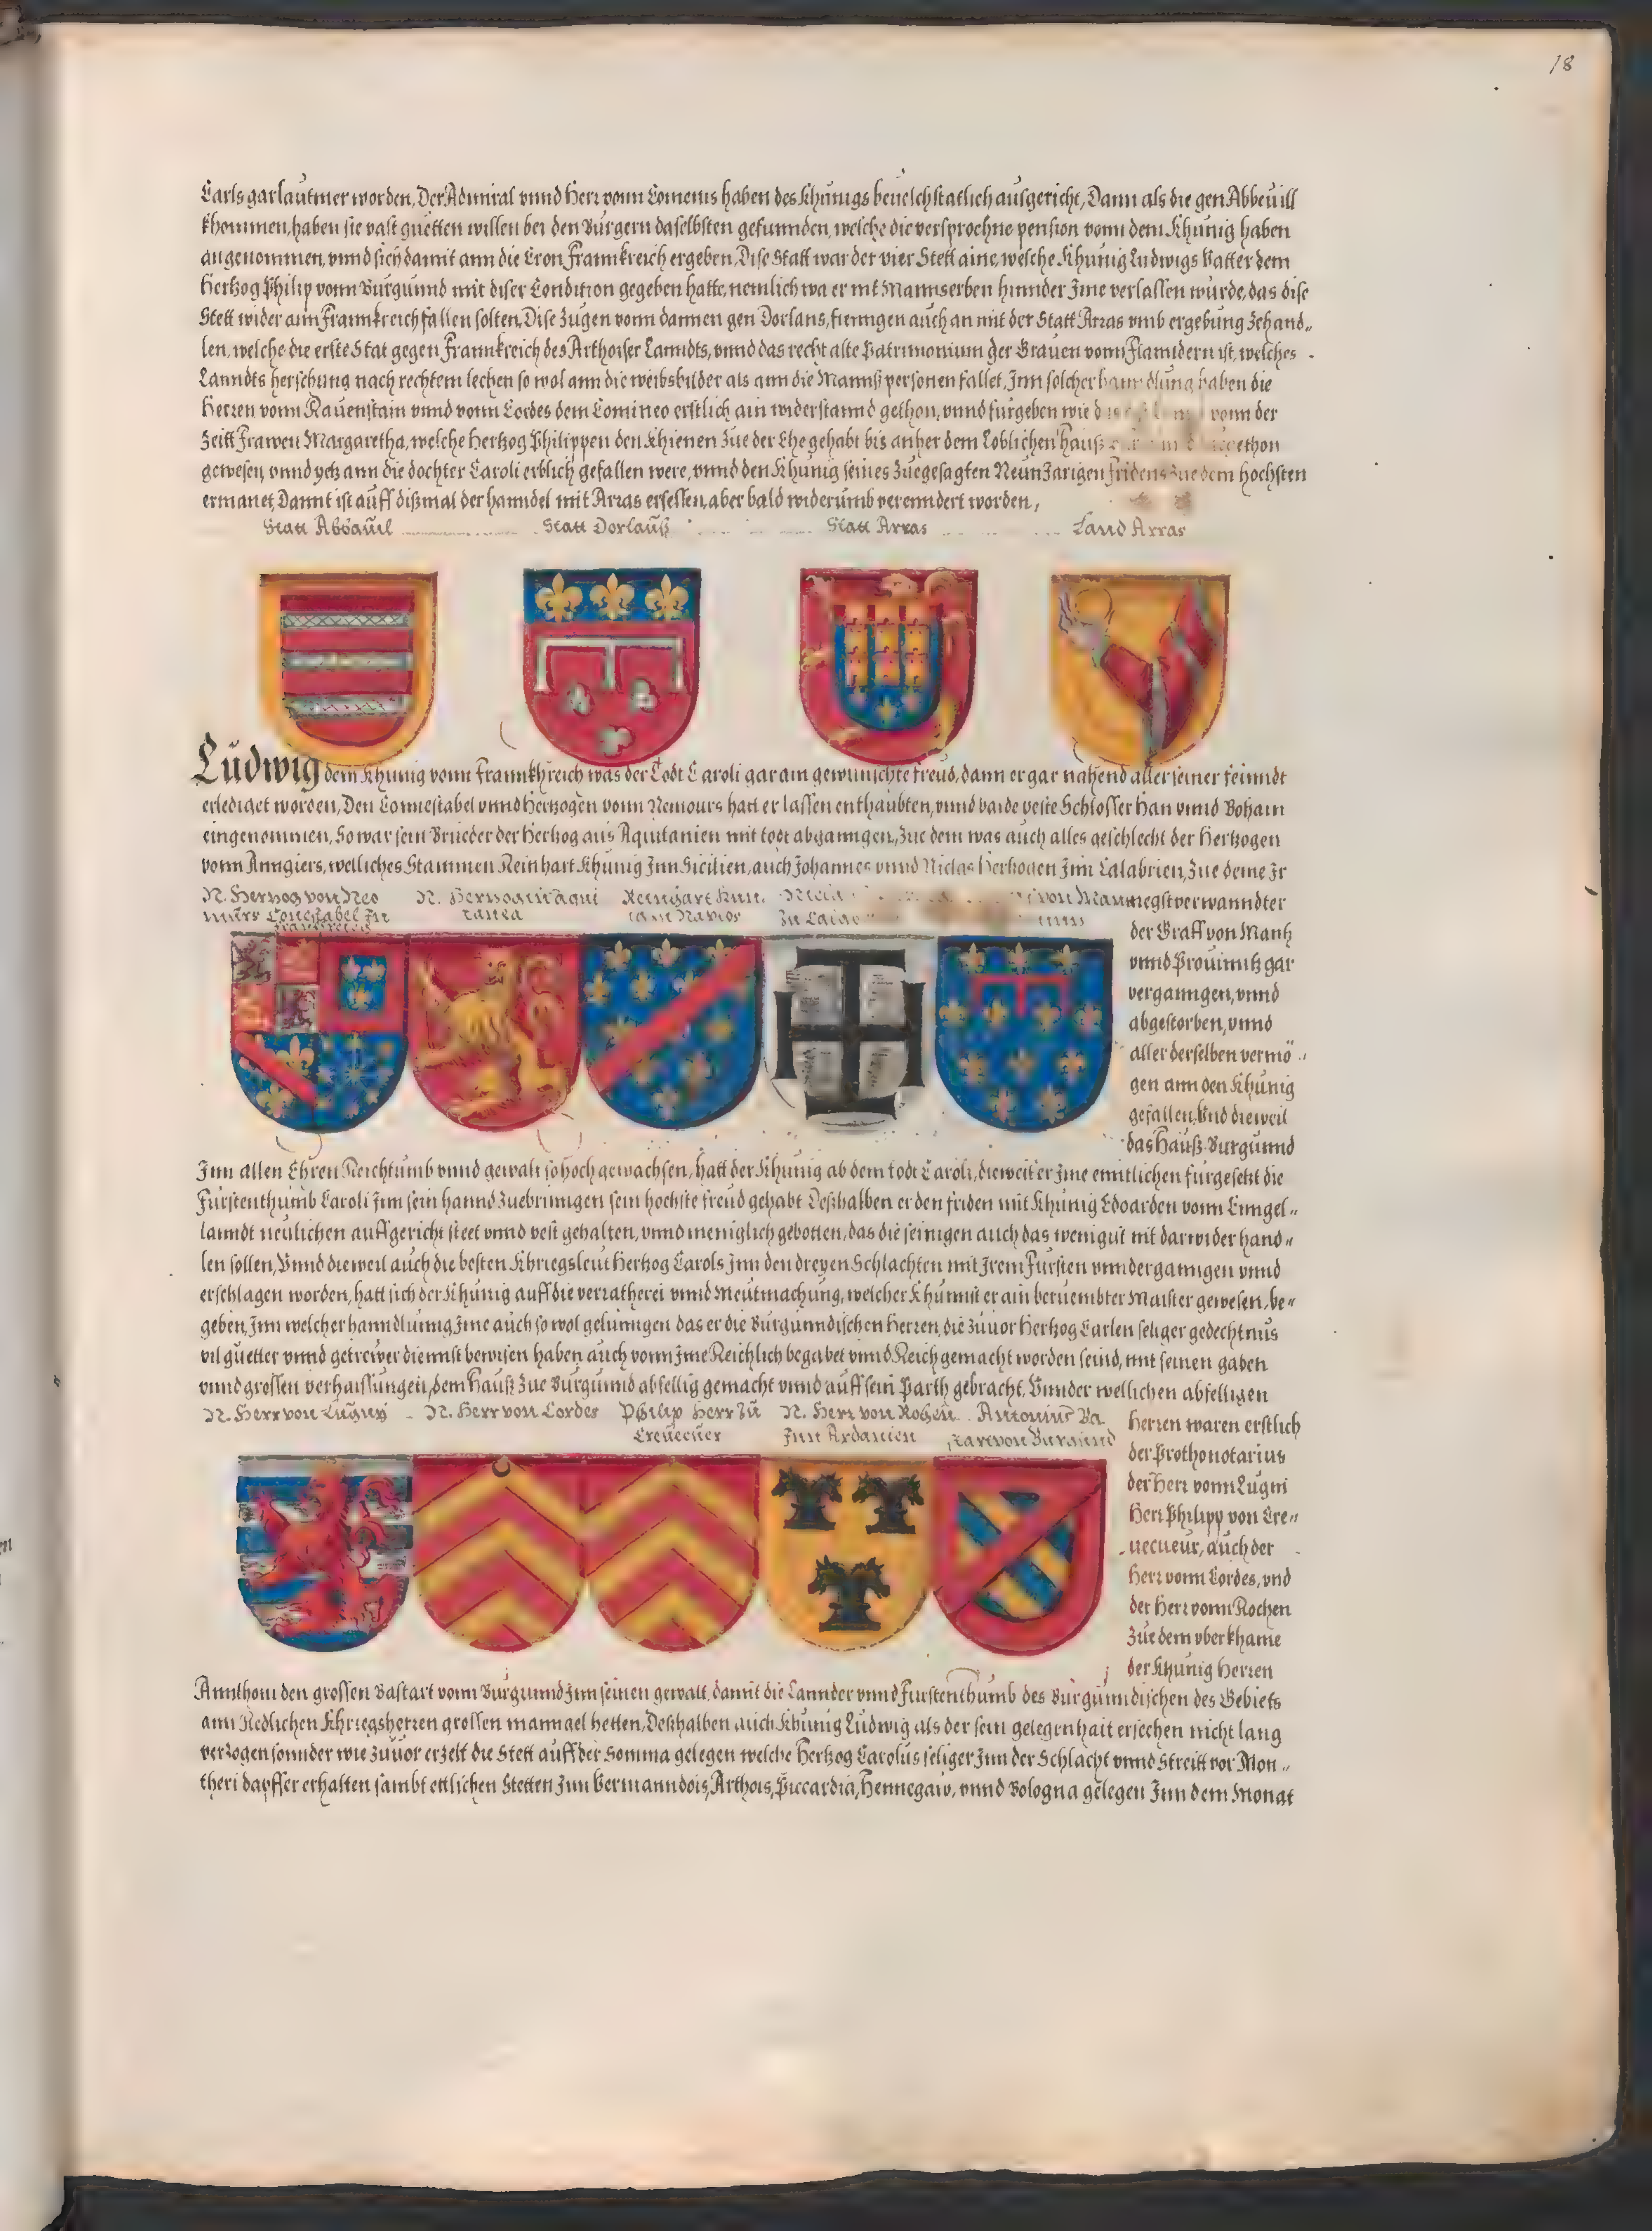 18
Carls gar lautmer worden, Der Admiral vnnd Herr vonn Comenis haben des Khunigs beuelch statlich ausgericht, Dann als die gen Abbeuill
khommen, haben sie vast guetten willen bei den Burgern daselbsten gefunnden, welche die versprochne pension vonn dem Khunig haben
angenommen, vnnd sich damit ann die Cron Frannkreich ergeben, Dise Statt war der vier Stett aine, welche Khunig Ludwigs Vatter dem
Hertzog Philip vonn Burgunnd mit diser Condition gegeben hatte, nemlich wa er nit Mannserben hinnder Jme verlassen wurde, das dise
Stett wider ann Frannkreich fallen solten, Dise Zugen vonn dannen gen Dorlans, fienngen auch an mit der Statt Arras vmb ergebung Zehand„
len, welche die erste Stat gegen Frannkreich des Arthoiser Lanndts, vnnd das recht alte Patrimonium der Grauen vonn Flanndern ist, welches
Lanndts herschung nach rechtem lechen so wol ann die weibsbilder als ann die Mannß personen fallet, Jnn solcher haben die
Herren vonn Rauenstain vnnd vonn Cordes dem Comineo erstlich ain widerstannd gethon, vnnd furgeben wie vonn der
Zeitt Frawen Margaretha, welche Hertzog Philippen den Khienen Zue der Ehe gehabt bis anher dem Loblichen Hauß
gewesen, vnnd yetz ann die dochter Caroli erblich gefallen were, vnnd den Khunig seines Zuegesagten Neun Jarigen fridens Zue dem hochsten
ermanet, Dannt ist auff dißmal der hanndel mit Arras ersessen, aber bald widerumb verenndert worden,
Statt Abbauil Statt Dorlauß Statt Arras Land Arras
Ludwig dem Khunig vonn Frannkhreich was der Todt Caroli gar ain gewunschte freud, dann er gar nahend aller seiner feinndt
erlediget worden, Den Connestabel vnnd Hertzogen vonn Nemours hatt er lassen enthaubten, vnnd baide veste Schlosser Han vnnd Bohain
eingenommen, So war sein Brueder der Hertzog aus Aquitanien mit todt abganngen, Zue dem was auch alles geschlecht der Hertzogen
vonn Anngiers, welliches Stammen Reinhart Khunig Jnn Sicilien, auch Johannes vnnd Niclas Hertzogen Jnn Calabrien, Zue deme Jr
negst verwanndter
N. Hertzog von Neo
murs Conestabel Zu
N. Hertzog in Aqui
tania
Reinhart
der Graff von Mantz
vnnd Prouinntz gar
verganngen, vnnd
abgestorben, vnnd
aller derselben vermö„
gen ann den Khunig
gefallen, Vnd dieweil
das Hauß Burgunnd
Jnn allen Ehren Reichtumb vnnd gewalt so hoch gewachsen, hatt der Khunig ab dem todt Caroli, dieweil er Jme enntlichen furgesetzt die
Furstenthumb Caroli Jnn sein hannd Zuebrinngen sein hochste freud gehabt Deßhalben er den friden mit Khunig Edoarden vonn Enngel„
lanndt neulichen auffgericht steet vnnd vest gehalten, vnnd meniglich gebotten, das die seinigen auch das wenigist nit darwider hand„
len sollen, Vnnd dieweil auch die besten Khriegsleut Hertzog Carols Jnn den dreyen Schlachten mit Jrem Fursten vnnderganngen vnnd
erschlagen worden, hatt sich der Khunig auff die verratherei vnnd Meutmachung, welcher Khunnst er ain beruembter Maister gewesen, be„
geben, Jnn welcher hanndlunng Jme auch so wol gelunngen das er die Burgunndischen Herren, die Zuuor Hertzog Carlen seliger gedechtnus
vil guetter vnnd getrewer diennst bewisen haben auch vonn Jme Reichlich begabet vnnd Reich gemacht worden seind, mit seinen gaben
vnnd grossen verhaissungen, dem Hauß Zue Burgunnd abfellig gemacht vnnd auff sein Parth gebracht, Vnnder wellichen abfelligen
N. Herr von Lugny N. Herr von Cordes Philip Herr Zu
Creuecuer
N. Herr von Rochen
Jnn Ardanien
Antonius Ba
start von Burgund
Herren waren erstlich
der Prothonotarius
der Herr vonn Lugni
Herr Philipp von Cre„
uecueur, auch der
Herr vonn Cordes, vnd
der Herr vonn Rochen
Zue dem vberkhame
der Khunig Herren
Annthoni den grossen Bastart vonn Burgunnd Jnn seinen gewalt, damit die Lannder vnnd Furstenthumb des Burgunndischen des Gebiets
ann Redlichen Khriegsherren grossen manngel hetten, Deßhalben auch Khunig Ludwig als der sein gelegenhait ersechen nicht lang
verzogen sonnder wie Zuuor erzelt die Stett auff der Somma gelegen welche Hertzog Carolus seliger Jnn der Schlacht vnnd Streitt vor Mon„
theri dapffer erhalten sambt ettlichen Stetten Jnn Vermanndois, Arthois, Piccardia, Hennegaw, vnnd Bologna gelegen Jnn dem Monat